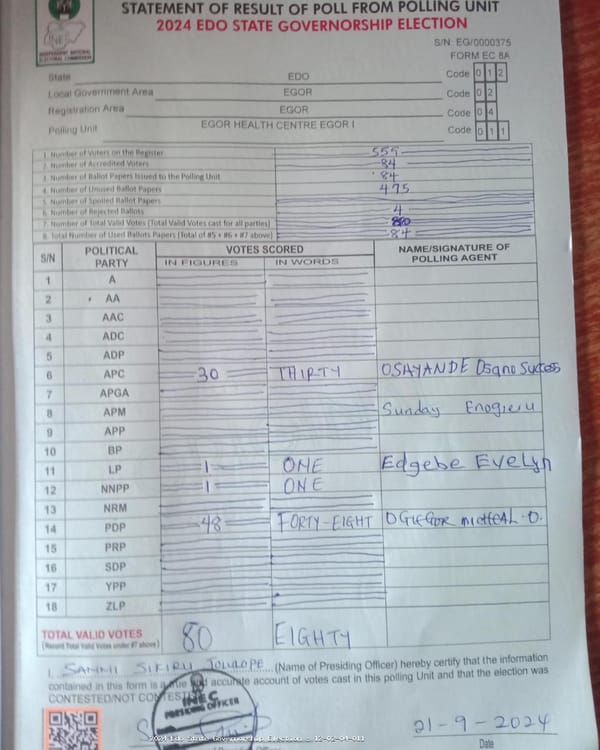 STATEMENT OF RESULT OF POLL FROM POLLING UNIT
2024 EDO STATE GOVERNORSHIP ELECTION
INEC
INDEPENDENT NATIONAL ELECTORAL COMMISSION
S/N: EG/0000375
FORM EC 8A
State EDO Code 0 1 2
Local Government Area EGOR Code 0 2
Registration Area EGOR Code 0 4
Polling Unit EGOR HEALTH CENTRE EGOR I Code 0 1 1
1. Number of Voters on the Register 559
2. Number of Accredited Voters 84
3. Number of Ballot Papers Issued to the Polling Unit 84
4. Number of Unused Ballot Papers 475
5. Number of Spoiled Ballot Papers
6. Number of Rejected Ballots 4
7. Number of Total Valid Votes (Total Valid Votes cast for all parties) 80
8. Total Number of Used Ballots Papers (Total of #5 + #6 + #7 above) 84
S/N POLITICAL PARTY VOTES SCORED NAME/SIGNATURE OF POLLING AGENT
IN FIGURES IN WORDS
1 A
2 AA
3 AAC
4 ADC
5 ADP
6 APC 30 THIRTY OSAYANDE Osaro Success
7 APGA
8 APM Sunday Enogieru
9 APP
10 BP
11 LP 1 ONE Edgebe Evelyn
12 NNPP 1 ONE
13 NRM
14 PDP 48 FORTY-EIGHT
15 PRP
16 SDP
17 YPP
18 ZLP
TOTAL VALID VOTES 80 EIGHTY
(Record Total Valid Votes under #7 above)
I, SAMMI SIKIRU (Name of Presiding Officer) hereby certify that the information
contained in this form is a true and accurate account of votes cast in this polling Unit and that the election was
CONTESTED/NOT CONTESTED
INEC
PRESIDING OFFICER
21-9-2024
Date
2024 Edo State Governorship Election - 12-02-04-011